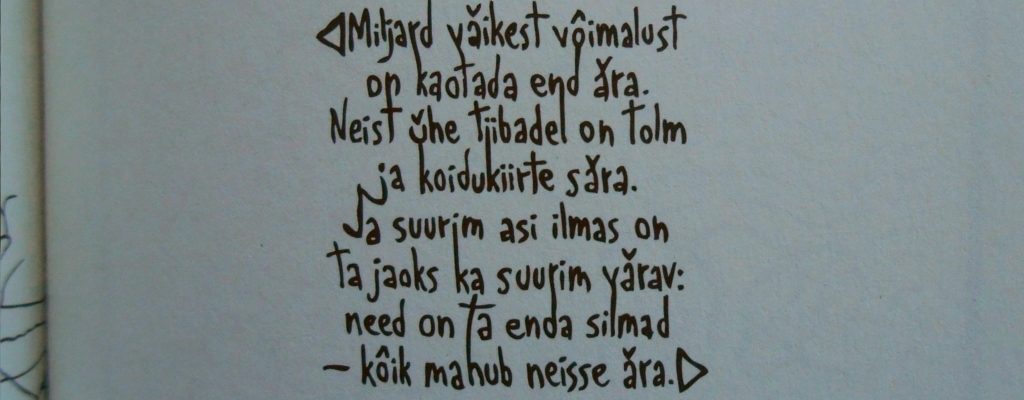 ◁Miljard väikest võimalust
on kaotada end ära.
Neist ühe tiibadel on tolm
ja koidukiirte sära.
Ja suurim asi ilmas on
ta jaoks ka suurim värav:
need on ta enda silmad
– kõik mahub neisse ära.▷